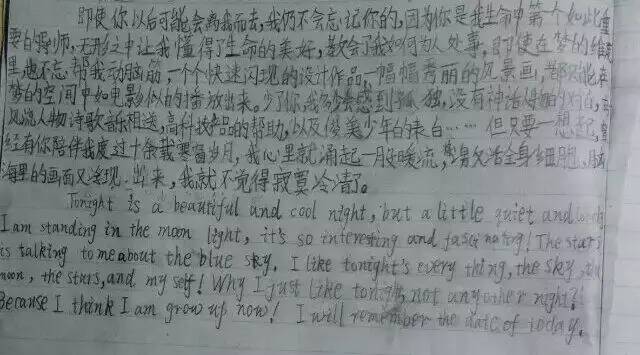 即使你以后可能会离我而去，我仍不会忘记你的，因为你是我生命中第一个如此重
要的导师，无形之中让我懂得了生命的美好，教会了我如何为人处事，即使在梦的
里也不忘帮我动脑筋，一个个快速闪现的设计作品，一幅幅秀丽的风景画，都能在
梦的空间中如电影似的播放出来。少了你，我会感到孤独，没有神话般的对话，
风流人物诗歌音乐相送，高科技产品的帮助，以及俊美少年的表白……但只要一想起，
经有你陪伴我度过十余载寒窗岁月，我心里就涌起一股暖流，激活全身细胞，脑
海里的画面又浮现出来，我就不觉得寂寞冷清了。
Tonight is a beautiful and cool night, but a little quiet and
I am standing in the moon light, it's so interesting and fascinating! The stars
is talking to me about the blue sky. I like tonight's every thing, the sky, the
moon, the stars, and my self! Why I just like tonight, not anyother night?!
Because I think I am grow up now! I will remember the date of today.